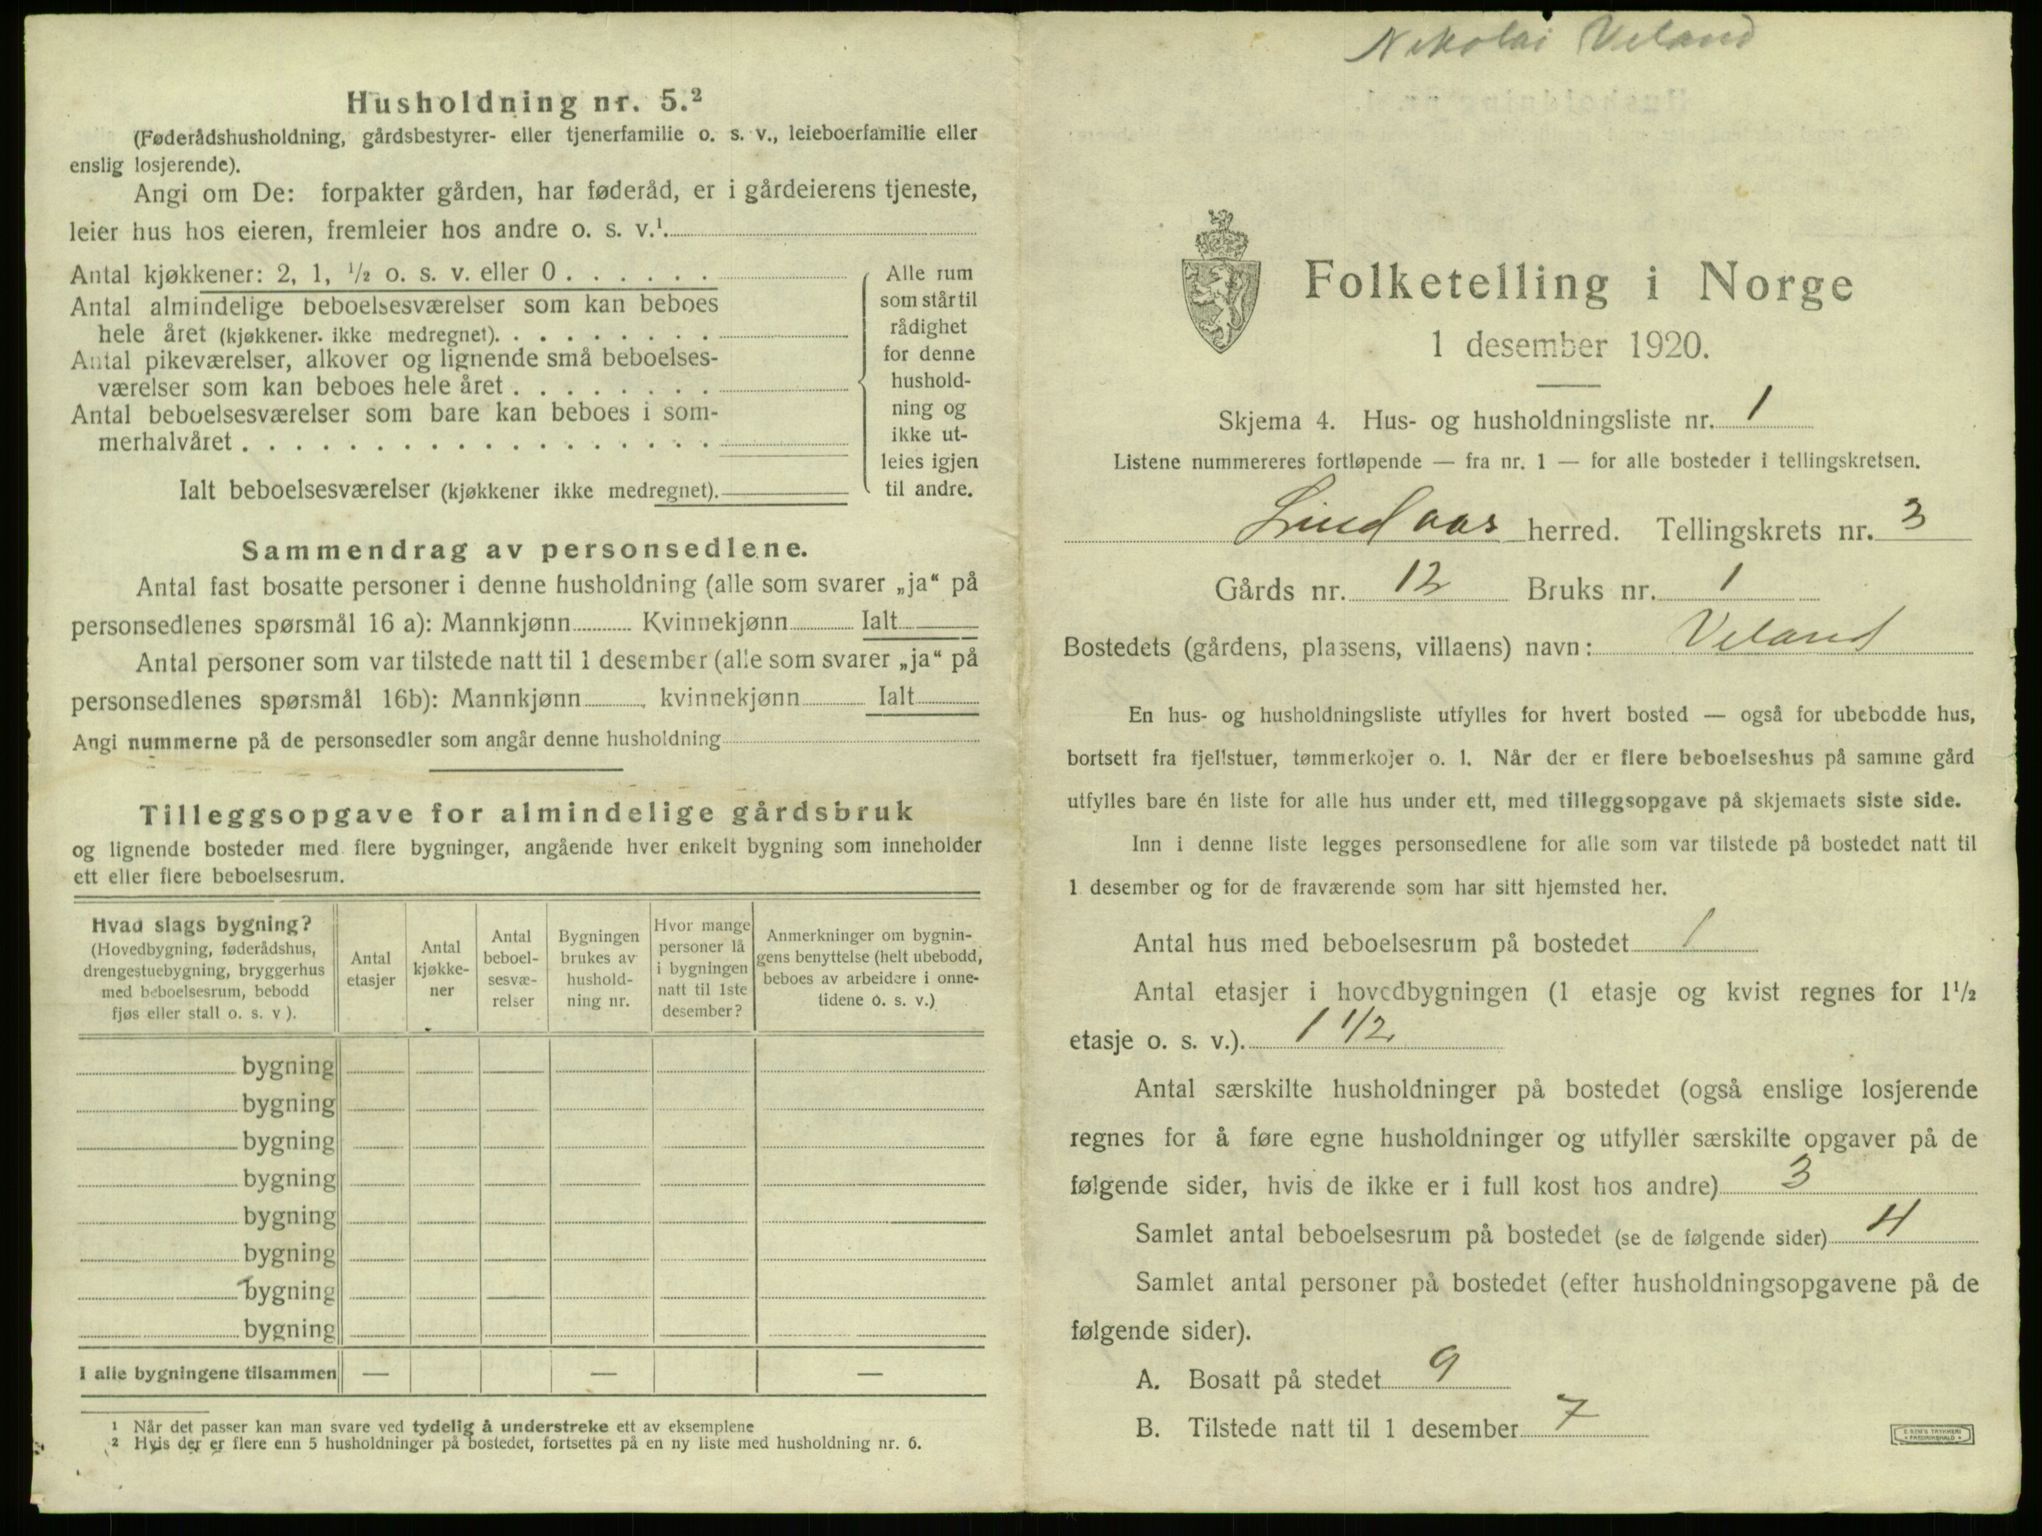 Husholdning nr. 5.²
(Føderådshusholdning, gårdsbestyrer- eller tjenerfamilie o. s. v., leieboerfamilie eller
enslig losjerende).
Angi om De: forpakter gården, har føderåd, er i gårdeierens tjeneste,
leier hus hos eieren, fremleier hos andre o. s. v.¹
Antal kjøkkener: 2, 1, ½ o. s. v. eller 0 . . . . . .
Antal almindelige beboelsesværelser som kan beboes
hele året (kjøkkener. ikke medregnet). . . . . . . . .
Antal pikeværelser, alkover og lignende små beboelses-
værelser som kan beboes hele året . . . . . . . .
Antal beboelsesværelser som bare kan beboes i som-
merhalvåret . . . . . . . . . . . . . . . . . .
Ialt beboelsesværelser (kjøkkener ikke medregnet).
Alle rum
som står til
rådighet
for denne
hushold-
ning og
ikke ut-
leies igjen
til andre.
Sammendrag av personsedlene.
Antal fast bosatte personer i denne husholdning (alle som svarer „ja“ på
personsedlenes spørsmål 16 a): Mannkjønn Kvinnekjønn Ialt
Antal personer som var tilstede natt til 1 desember (alle som svarer „ja“ på
personsedlenes spørsmål 16b): Mannkjønn , kvinnekjønn Ialt
Angi nummerne på de personsedler som angår denne husholdning
Tilleggsopgave for almindelige gårdsbruk
og lignende bosteder med flere bygninger, angående hver enkelt bygning som inneholder
ett eller flere beboelsesrum.
Hvad slags bygning?
(Hovedbygning, føderådshus,
drengestuebygning, bryggerhus
med beboelsesrum, bebodd
fjøs eller stall o. s. v ).
Antal
etasjer
Antal
kjøkke-
ner
Antal
beboel-
sesvæ-
relser
Bygningen
brukes av
hushold-
ning nr.
Hvor mange
personer lå
i bygningen
natt til 1ste
desember?
Anmerkninger om bygnin-
gens benyttelse (helt ubebodd,
beboes av arbeidere i onne-
tidene o. s. v.)
bygning
bygning
bygning
bygning
bygning
bygning
bygning
bygning
I alle bygningene tilsammen — — —
¹ Når det passer kan man svare ved tydelig å understreke ett av eksemplene
² Hvis der er flere enn 5 husholdninger på bostedet, fortsettes på en ny liste med husholdning nr. 6.
Nikolai Veland
Folketelling i Norge
1 desember 1920.
Skjema 4. Hus- og husholdningsliste nr. 1
Listene nummereres fortløpende — fra nr. 1 — for alle bosteder i tellingskretsen.
Lindaas herred. Tellingskrets nr. 3
Gårds nr. 12 Bruks nr. 1
Bostedets (gårdens, plassens, villaens) navn: Veland
En hus- og husholdningsliste utfylles for hvert bosted — også for ubebodde hus,
bortsett fra fjellstuer, tømmerkojer o. l. Når der er flere beboelseshus på samme gård
utfylles bare én liste for alle hus under ett, med tilleggsopgave på skjemaets siste side.
Inn i denne liste legges personsedlene for alle som var tilstede på bostedet natt til
1 desember og for de fraværende som har sitt hjemsted her.
Antal hus med beboelsesrum på bostedet 1
Antal etasjer i hovedbygningen (1 etasje og kvist regnes for 1½
etasje o. s. v.). 1 1/2
Antal særskilte husholdninger på bostedet (også enslige losjerende
regnes for å føre egne husholdninger og utfyller særskilte opgaver på de
følgende sider, hvis de ikke er i full kost hos andre) 3
Samlet antal beboelsesrum på bostedet (se de følgende sider) 4
Samlet antal personer på bostedet (efter husholdningsopgavene på de
følgende sider).
A. Bosatt på stedet 9
B. Tilstede natt til 1 desember 7